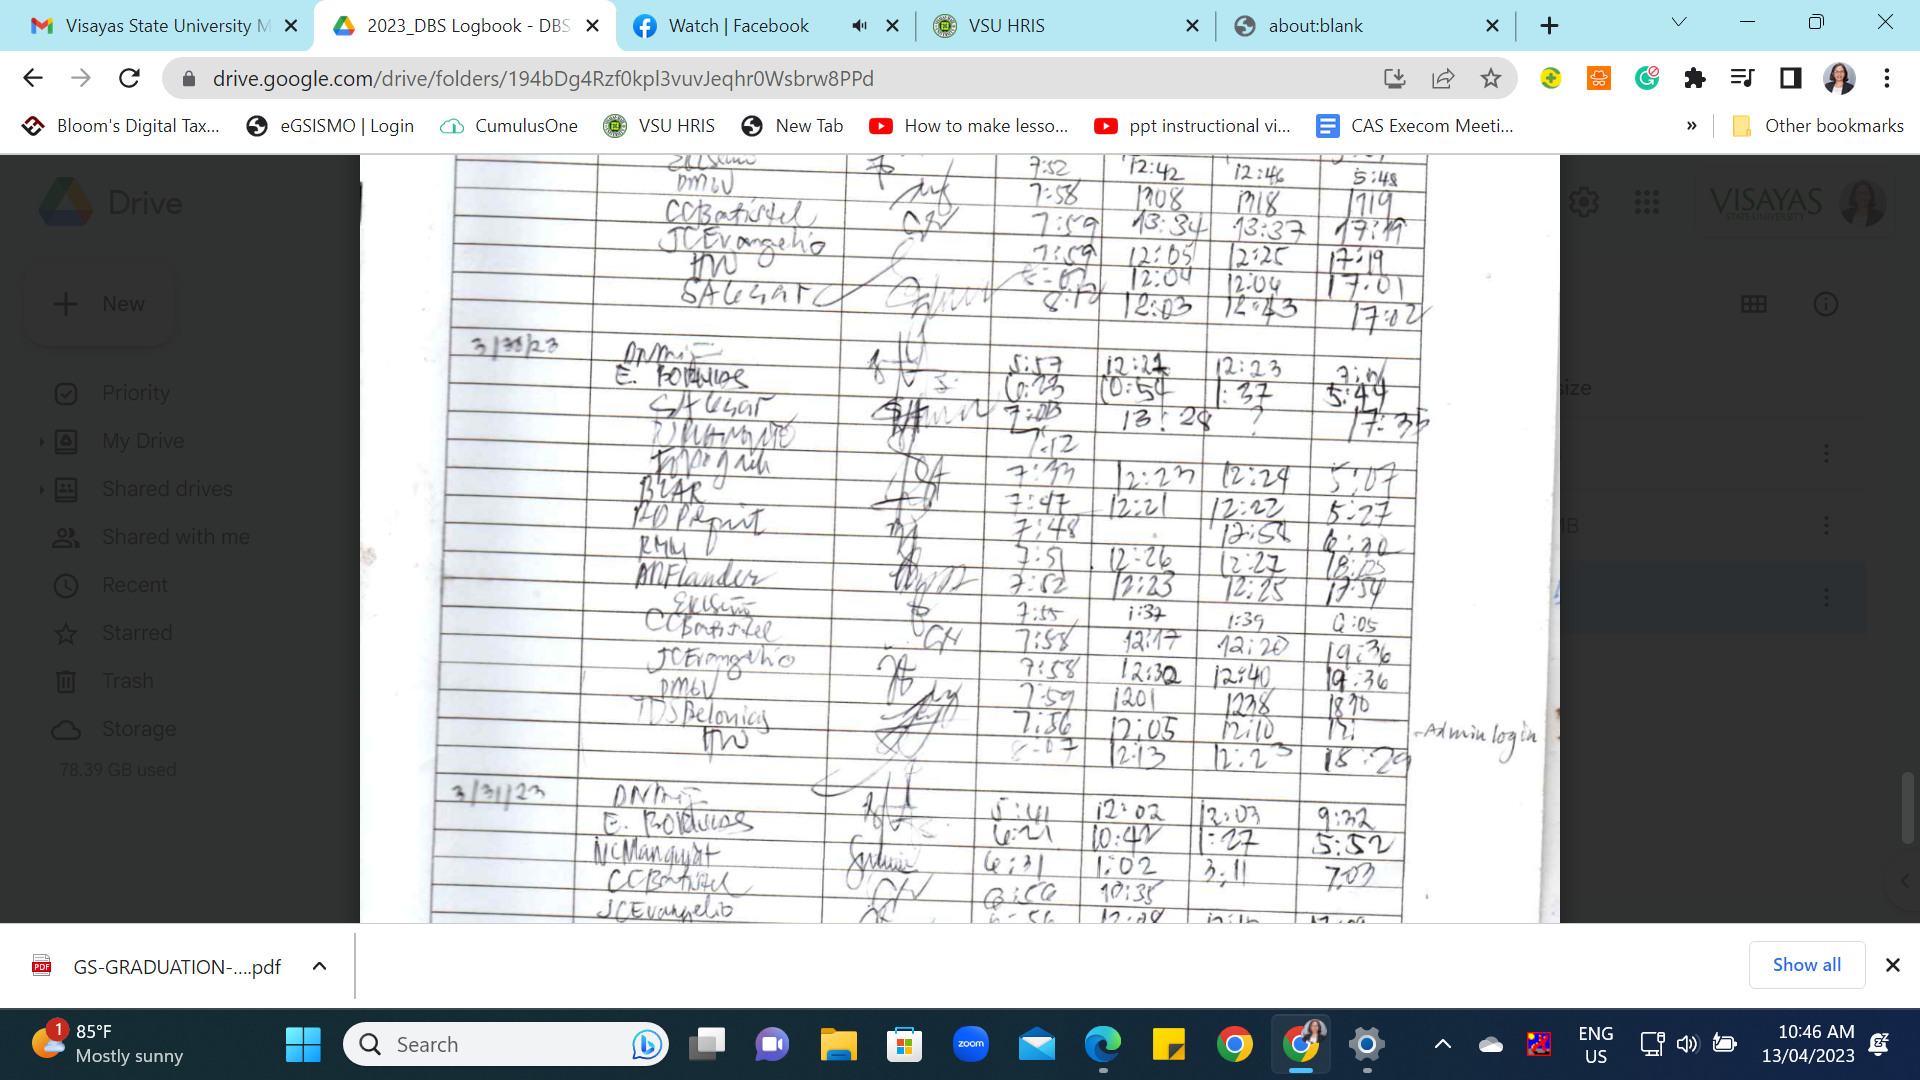 Visayas State University M
2023_DBS Logbook - DBS
Watch | Facebook
VSU HRIS
about:blank
drive.google.com/drive/folders/194bDg4Rzf0kpl3vuvJeqhr0Wsbrw8PPd
Bloom's Digital Tax... eGSISMO | Login CumulusOne VSU HRIS New Tab How to make lesso... ppt instructional vi... CAS Execom Meeti... » Other bookmarks
Drive
VISAYAS
STATE UNIVERSITY
New
Priority
My Drive
Shared drives
Shared with me
Recent
Starred
Trash
Storage
78.39 GB used
size
MB
7:52 12:42 12:46 5:48
DMGV 7:58 1308 1318 1719
CCBatistel CN 7:59 13:34 13:37 17:19
JCEvangelio 7:59 12:05 12:25 17:19
HW 8:07 12:04 12:04 17:01
SALesar 8:12 12:03 12:43 17:02
3/30/23 5:57 12:22 12:23
E. 6:23 10:54 1:37 5:44
SALesar 7:03 13:28 ? 17:35
7:12
7:33 12:23 12:24 5:07
BLAR 7:47 12:21 12:22 5:27
7:48 12:58 6:30
RMM 7:51 12:26 12:27 18:05
ANFlander 7:52 12:23 12:25 17:54
7:55 1:37 1:39 6:05
CCBatistel CN 7:58 12:17 12:20 19:36
JCEvangelio 7:58 12:30 12:40 19:36
DMGV 7:59 1201 1238 1830
TDSBelonias 7:56 12:05 12:10 -Admin login
HW 8:07 12:13 12:23 18:29
3/31/23 5:41 12:02 12:03 9:32
E. 6:21 10:42 1:27 5:52
NCManguyat 6:31 1:02 3:11 7:03
CCBatistel CN 6:56 10:35
JCEvangelio 6:56
GS-GRADUATION-....pdf
Show all
1
85°F
Mostly sunny
Search
zoom
ENG
US
10:46 AM
13/04/2023